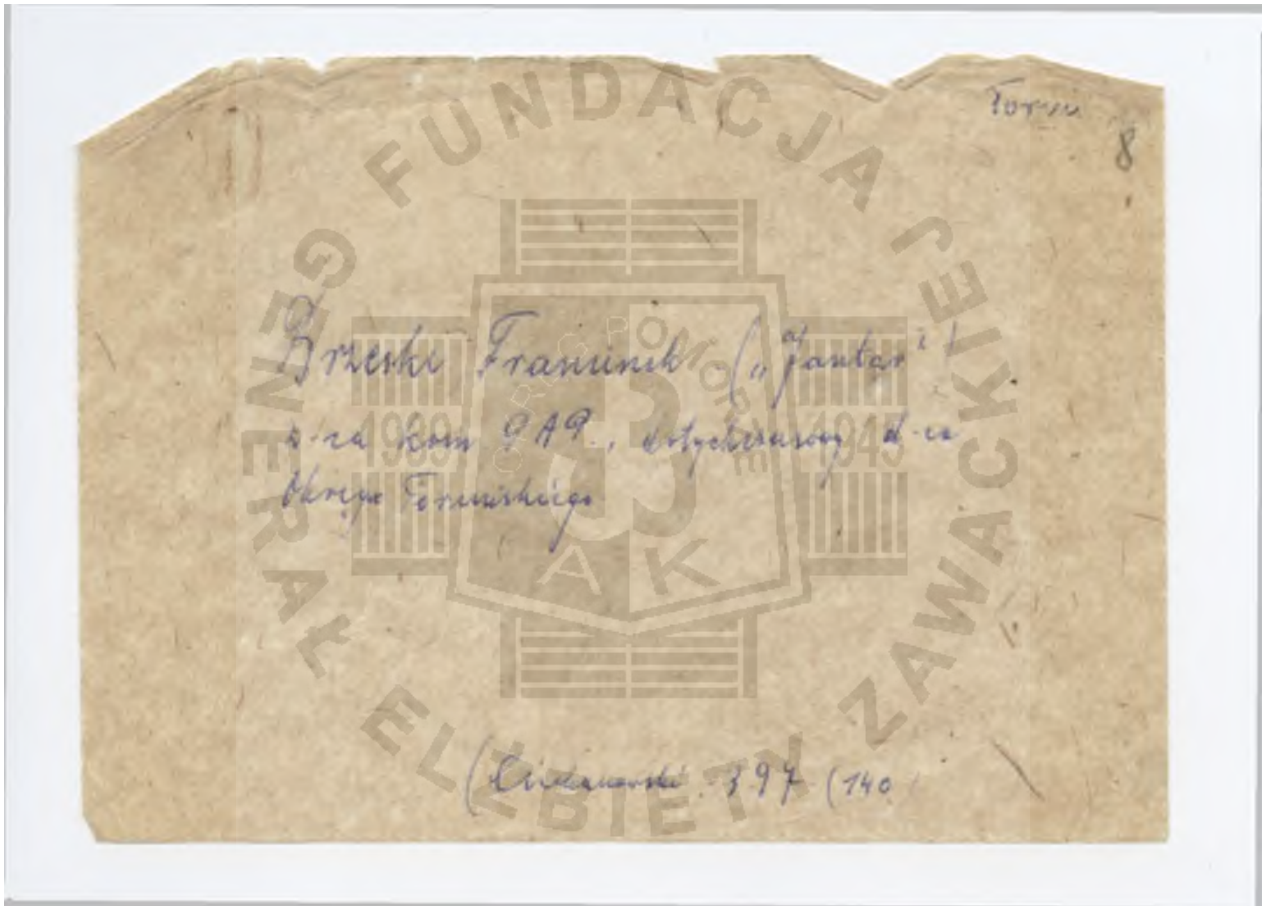 Toruń
8
Brzeski Franciszek („Jantar")
z-ca kom GAP., dotychczasowy d-ca
Okręgu Toruńskiego
(Ciechanowski 397 (140
FUNDACJA GENERAŁ ELŻBIETY ZAWACKIEJ
OKRĘG POMORZE
1939 1945
AK